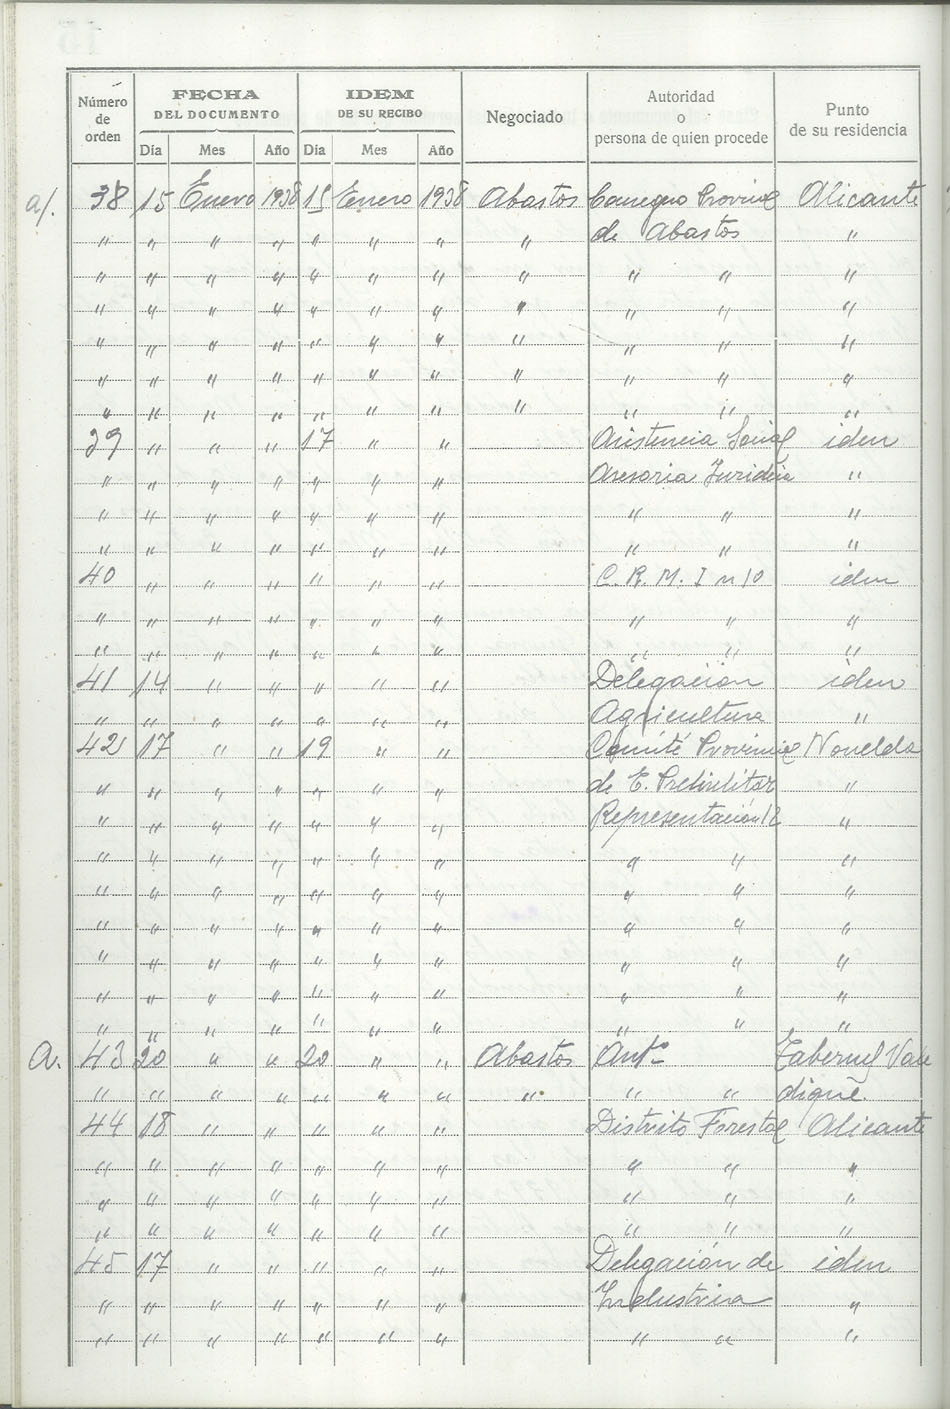 Número de orden FECHA DEL DOCUMENTO IDEM DE SU RECIBO Negociado Autoridad o persona de quien procede Punto de su residencia
Día Mes Año Día Mes Año
a/. 38 15 Enero 1938 15 Enero 1938 Abastos Consegero Provincial Alicante
" " " " " " " " de Abastos "
" " " " " " " " " " "
" " " " " " " " " " "
" " " " " " " " " " "
" " " " " " " " " " "
" " " " " " " " " " "
39 " " " 17 " " Asistencia Social iden
" " " " " " " Asesoria Juridica "
" " " " " " " " " "
" " " " " " " " " "
40 " " " " " " C. R. M. I n 10 iden
" " " " " " " " " "
" " " " " " " " " "
41 14 " " " " " Delegación iden
" " " " " " " Agricultura "
42 17 " " 19 " " Comité Provincial Novelda
" " " " " " " de E.
" " " " " " " Representación 12 "
" " " " " " " " " "
" " " " " " " " " "
" " " " " " " " " "
" " " " " " " " " "
" " " " " " " " " "
" " " " " " " " " "
a. 43 20 " " 20 " " Abastos Ant°
" " " " " " " " " " digne.
44 18 " " " " " Distrito Forestal Alicante
" " " " " " " " " "
" " " " " " " " " "
" " " " " " " " " "
45 17 " " " " " Delegación de iden
" " " " " " " Industria "
" " " " " " " " " "